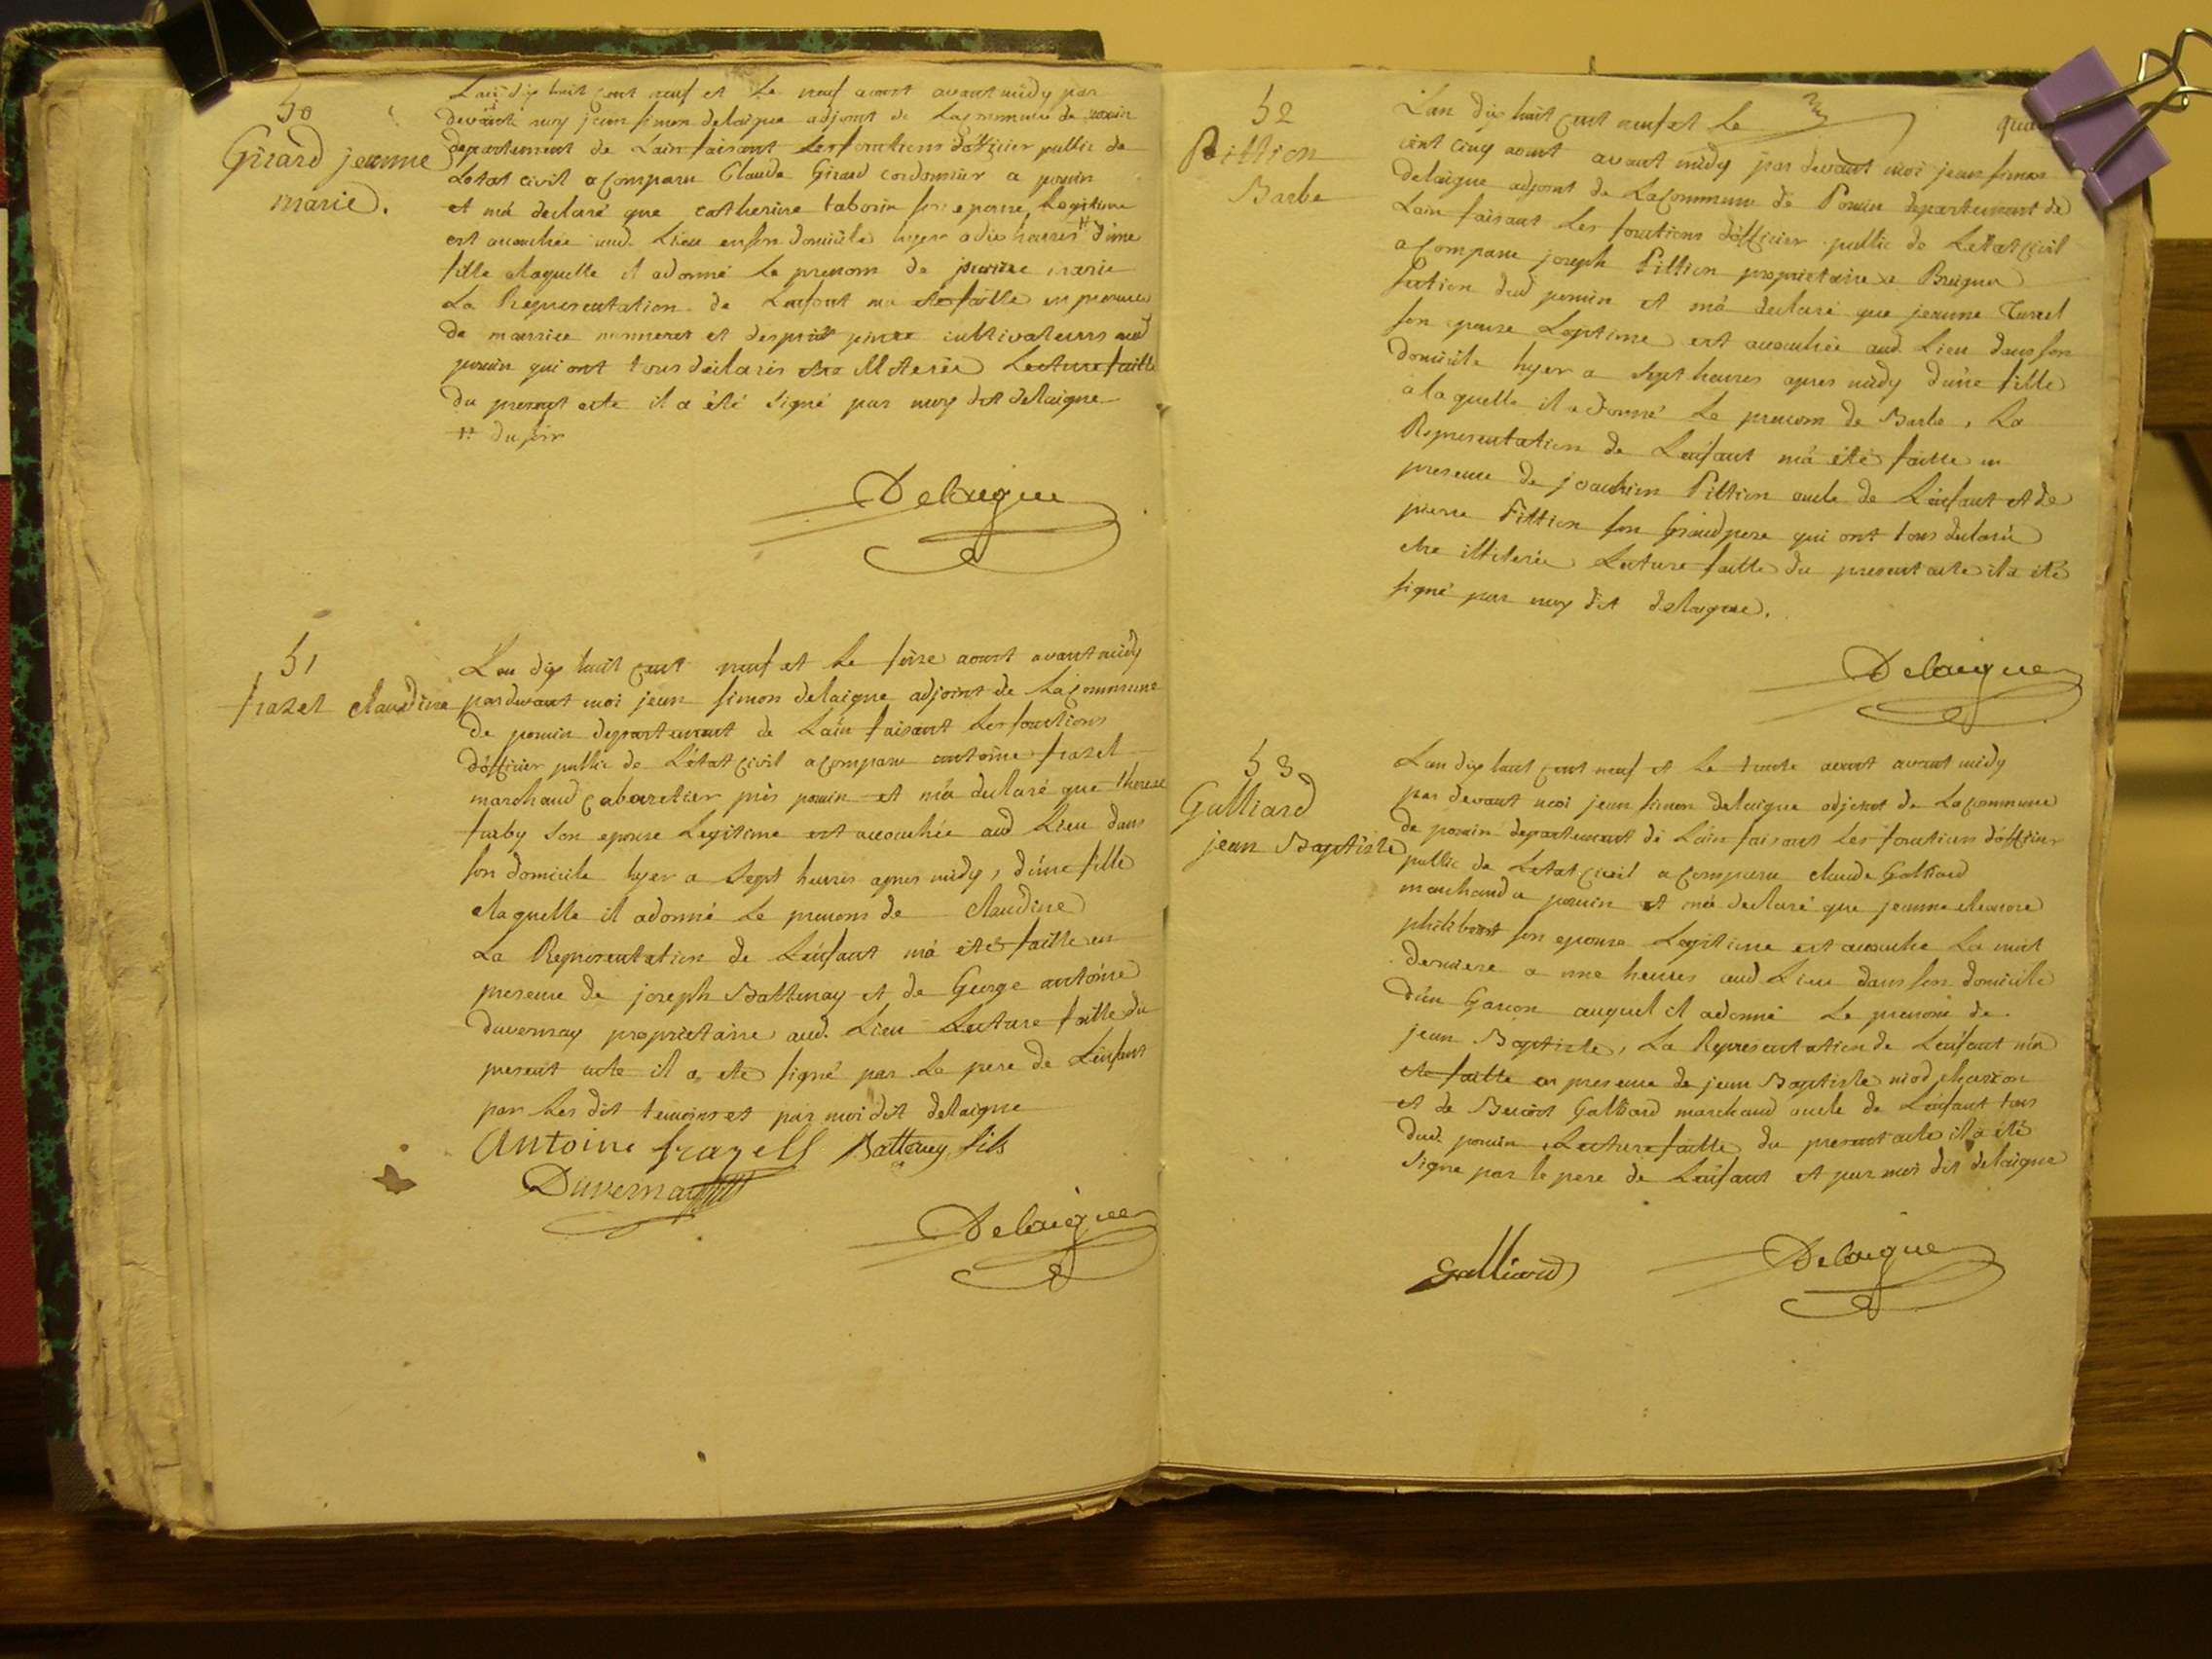 50
Girard jeanne
marie.
L'an dix huit cent neuf et Le neuf aoust avant midy par
devant moy jean simon delaigue adjoint de La commune de
departement de Lain faisant Les fonctions d'officier public de
Letat civil a comparu Claude Girard cordonnier a pouin
et m'a declaré que catherine taborin son epouse, Legitime
est accouchée aud. Lieu en son domicile hyer a dix heures # d'une
fille alaquelle il a donné Le prenom de jeanne marie
La Representation de Lenfant ma été faitte en presence
de maurice et pierre cultivateurs aud
pouin qui ont tous déclarés etre illiterée Lecture faitte
du present acte il a été signé par moy dit delaigue
# du soir
Delaigue
51
frazel claudine
L'an dix huit cent neuf et Le seize aoust avant midy
pardevant moi jean simon delaigue adjoint de La commune
de pouin departement de Lain faisant Les fonctions
d'officier public de L'état civil a comparu antoine frazel
marchand cabaretier près pouin et m'a declaré que therese
son epouse Legitime est accouchée aud Lieu dans
son domicile hyer a sept heures apres midy, d'une fille
alaquelle il a donné Le prenom de claudine
La Representation de Lenfant m'a été faitte en
presence de joseph Battenay et de George antoine
duvernay proprietaire aud. Lieu Lecture faitte du
present acte il a été signé par Le pere de Lenfant
par Les dit temoins et par moi dit delaigue
Antoine frazell Battenay fils
Duvernay
Delaigue
52
Pittion
Barbe
L'an dix huit cent neuf et Le
vint cinq aoust avant midy par devant moi jean simon
delaigue adjoint de La commune de Pouin departement de
Lain faisant Les fonctions d'officier public de Letat civil
a comparu joseph Pittion proprietaire a
dud pouin et m'a declaré que jeanne
son epouse Legitime est accouchée aud. Lieu dans son
domicile hyer a sept heures apres midy d'une fille
a laquelle il a donné Le prenom de Barbe, La
Representation de Lenfant m'a été faitte en
presence de joachim Pittion oncle de Lenfant et de
pierre Pittion son Grand pere qui ont tous declaré
etre illiterée Lecture faitte du present acte il a été
signé par moy dit delaigue.
Delaigue
53
Galliard
jean Baptiste
L'an dix huit cent neuf et Le trente aoust avant midy
par devant moi jean simon delaigue adjoint de La commune
de pouin departement de Lain faisant Les fonctions d'officier
public de Letat civil a comparu claude Galliard
marchand a pouin et m'a declaré que jeanne eleonore
philibert son epouse Legitime est accouchée La nuit
derniere a une heures aud Lieu dans son domicile
d'un Garcon auquel il a donné Le prenom de
jean Baptiste, La Representation de Lenfant m'a
été faitte en presence de jean Baptiste
et de Benoit Galliard marchand oncle de Lenfant tous
dud. pouin, Lecture faitte du present acte il a été
signé par le pere de Lenfant et par moi dit delaigue
Galliard Delaigue